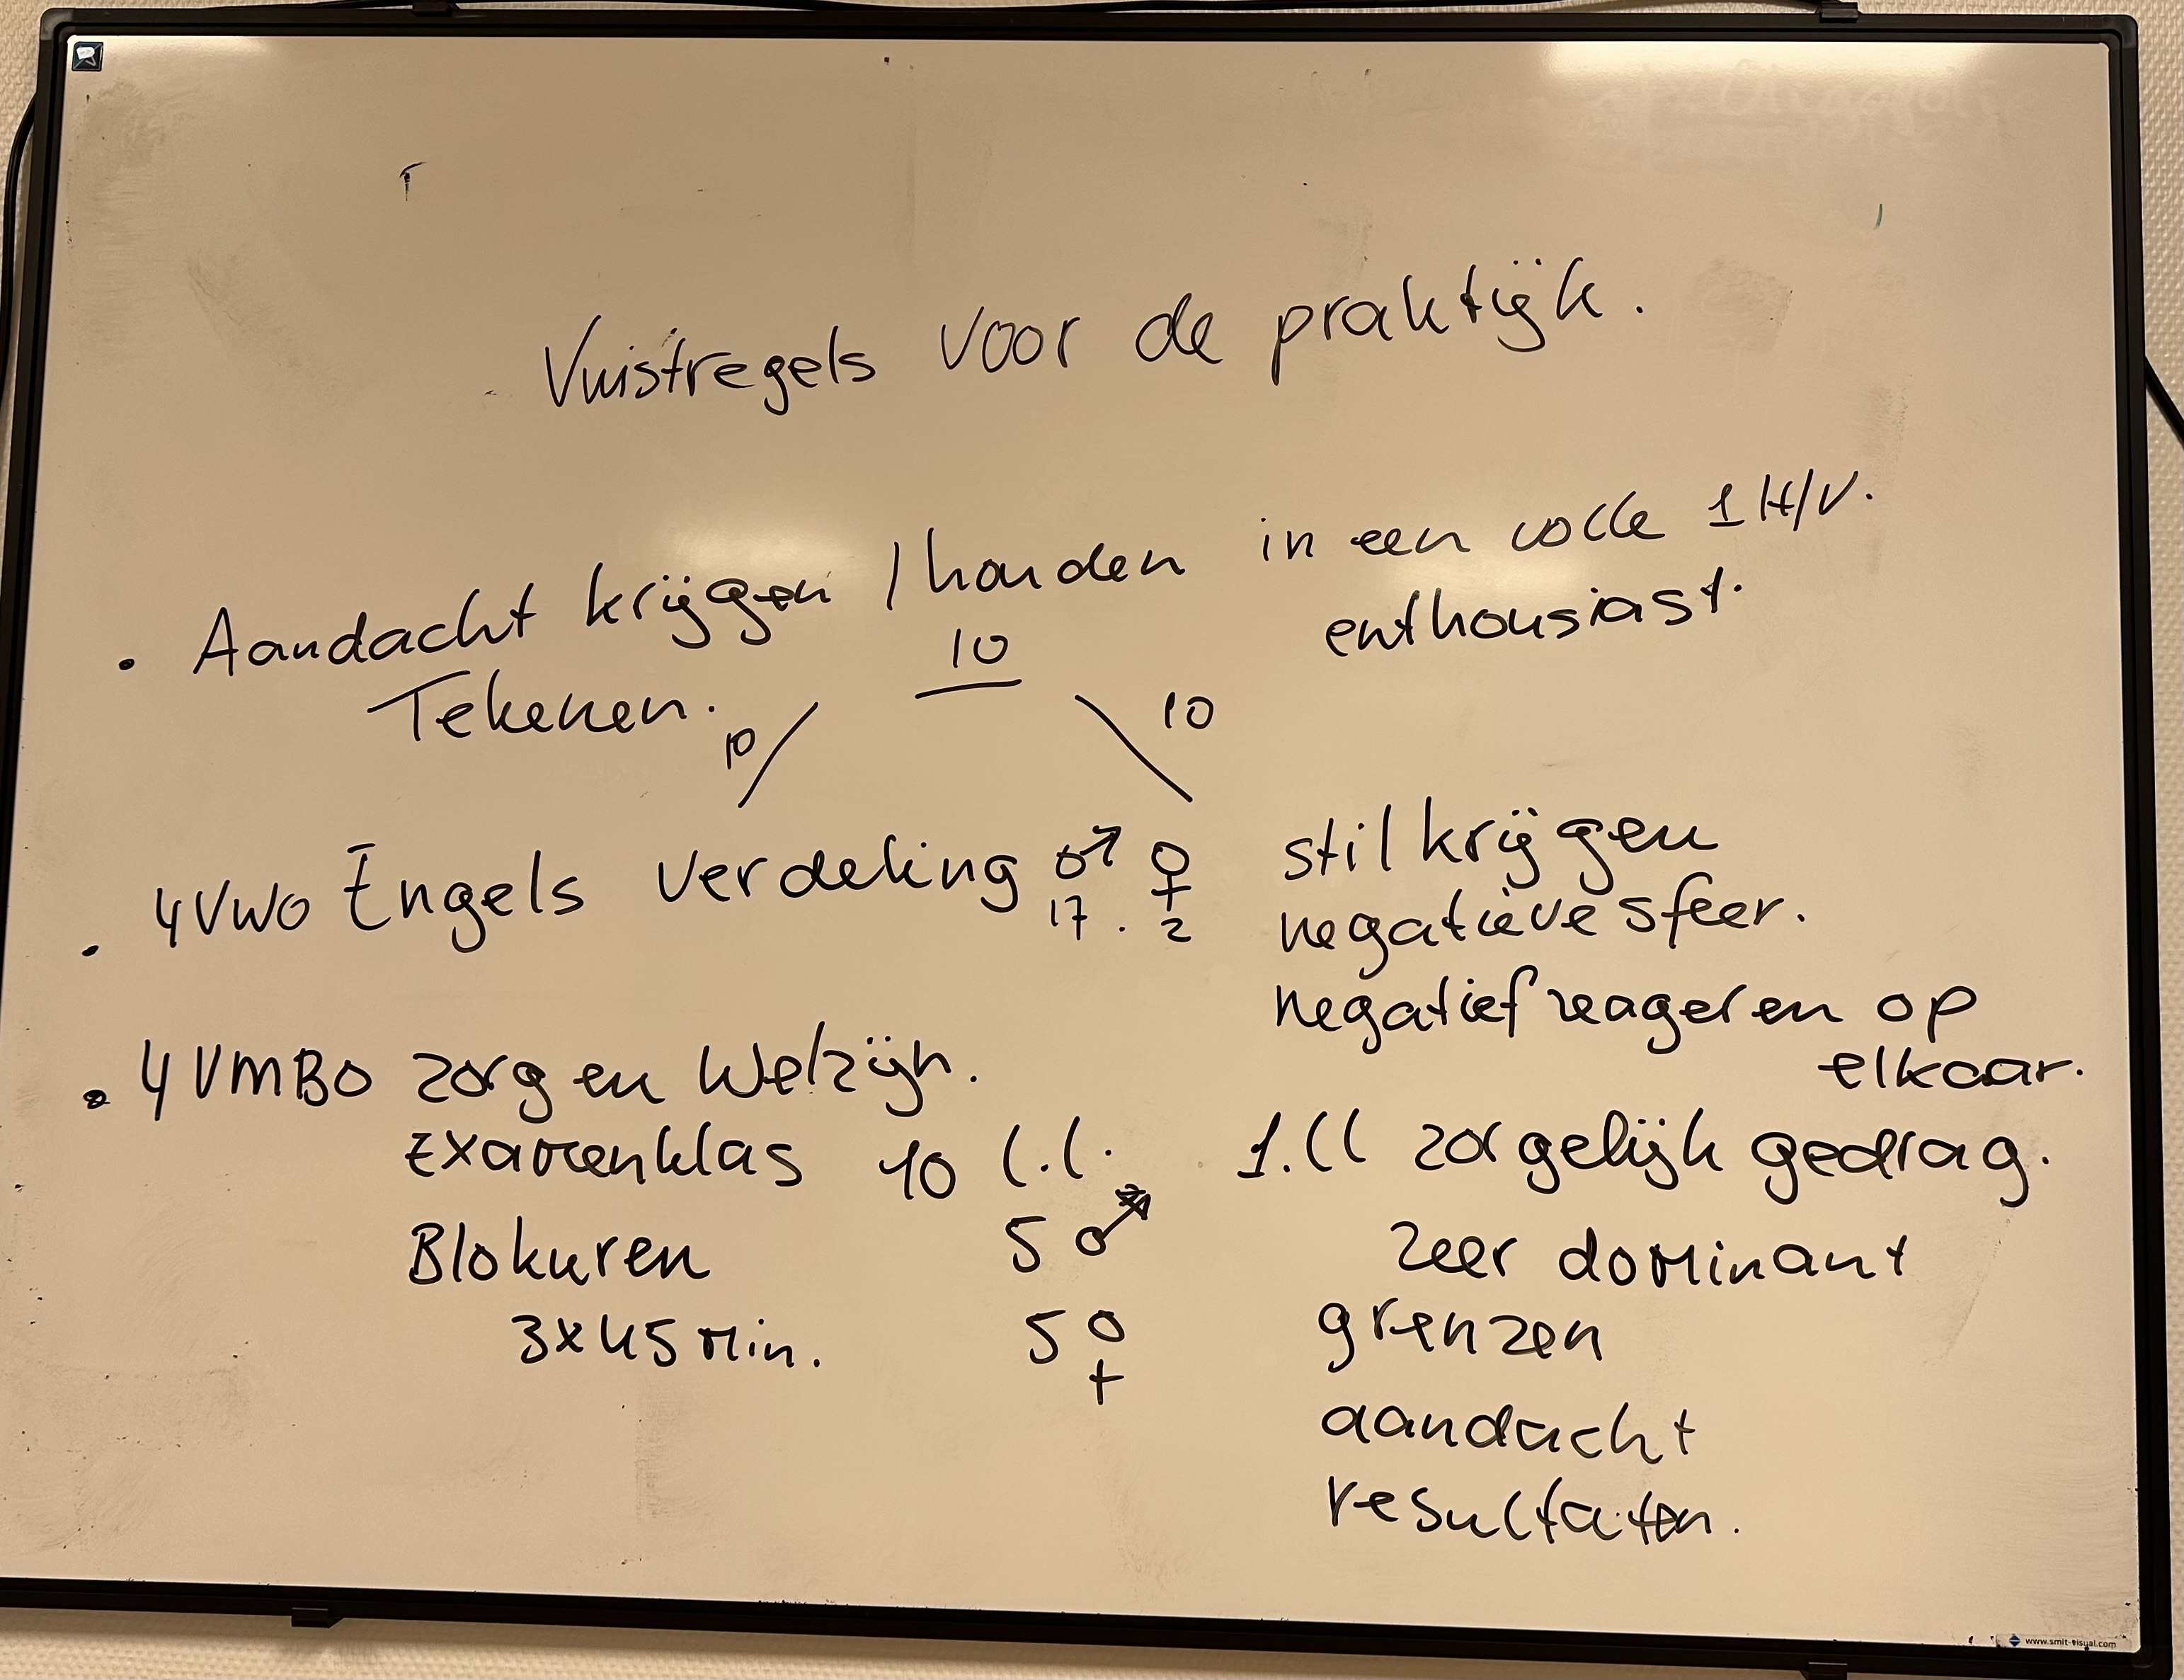 Vuistregels voor de praktijk.
• Aandacht krijgen / houden in een volle 1 H/V.
enthousiast.
Tekenen.
10
10
10
• 4VWO Engels verdeling ♂ ♀
17 . 2
stil krijgen
negatieve sfeer.
negatief reageren op
elkaar.
• 4 VMBO zorg en Welzijn.
Examenklas 10 l.l.
Blokuren 5 ♂
3x45 min. 5 ♀
1.ll zorgelijk gedrag.
zeer dominant
grenzen
aandacht
resultaten.
www.smit-visual.com